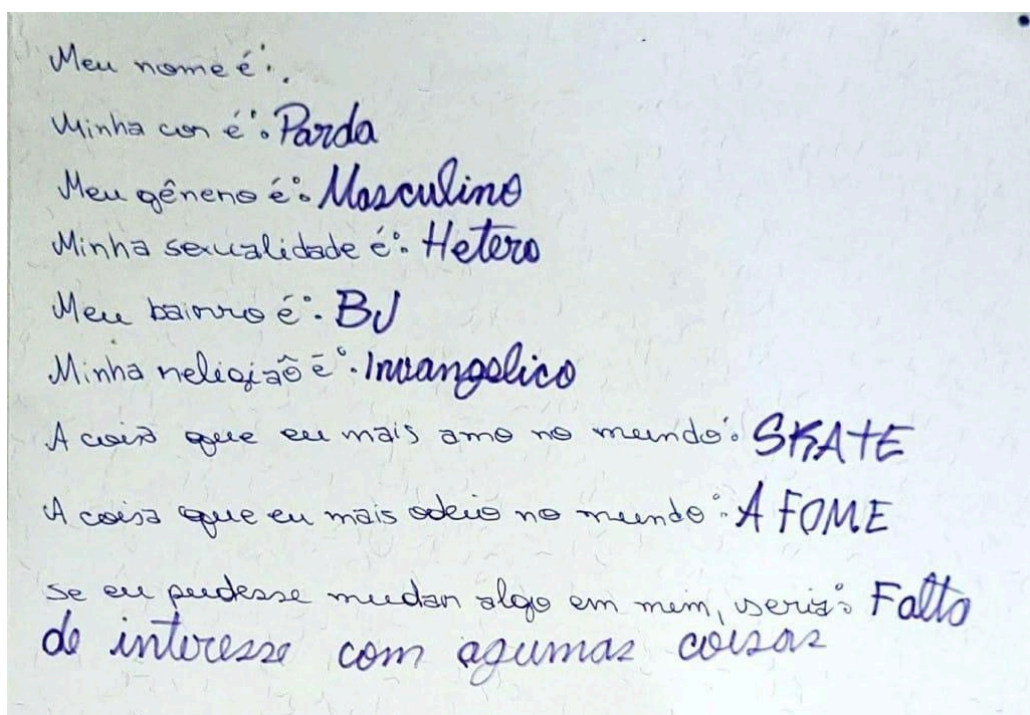 Meu nome é:
Minha cor é: Parda
Meu gênero é: Masculino
Minha sexualidade é: Hetero
Meu bairro é: BJ
Minha religião é: Invangelico
A coisa que eu mais amo no mundo: SKATE
A coisa que eu mais odeio no mundo: A FOME
Se eu pudesse mudar algo em mim, seria: Falta
de interesse com agumas coisas